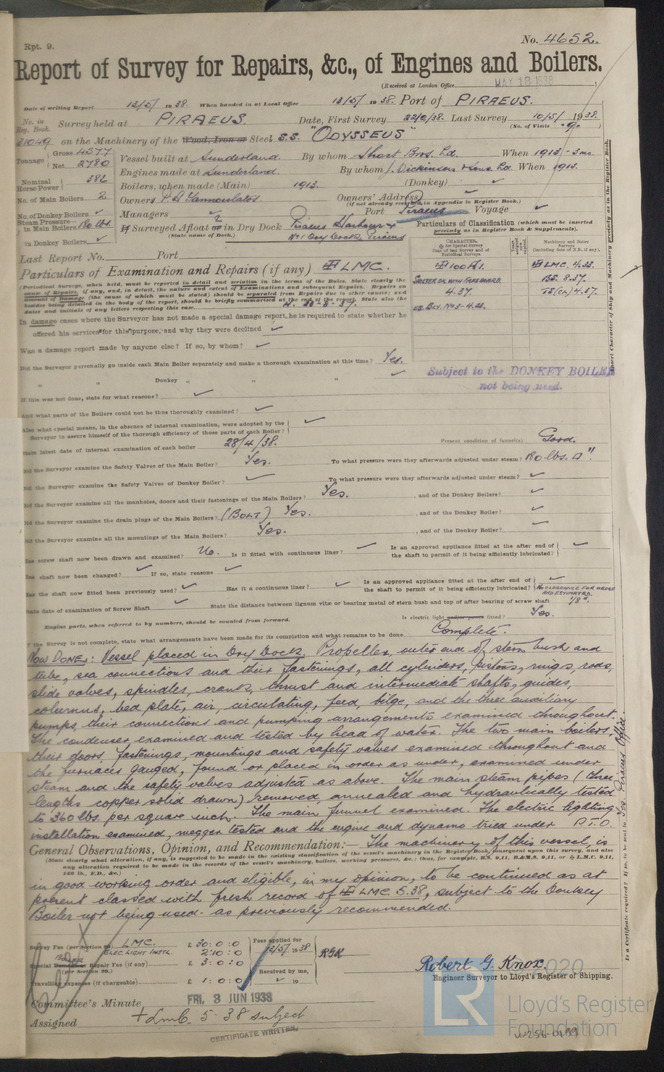 Rpt. 9.
No. 4652.
Report of Survey for Repairs, &c., of Engines and Boilers.
(Received at London Office MAY 18 1938 )
Date of writing Report 12/5/ 1938. When handed in at Local Office 12/5/ 1938. Port of PIRAEUS.
No. in Reg. Book Survey held at PIRAEUS Date, First Survey Last Survey 10/5/ 1938.
(No. of Visits 9)
on the Machinery of the Wood, Iron or Steel S.S. "ODYSSEUS"
Tonnage Gross 4577 Net 2780 Vessel built at Sunderland By whom Short Bros. Ld. When 1913
Engines made at Sunderland By whom J. Dickinson & Sons Ld. When 1913.
Nominal Horse Power 386
Boilers, when made (Main) 1913. (Donkey) ✓
No. of Main Boilers 2 Owners Owners' Address
(if not already recorded in Appendix to Register Book.)
No. of Donkey Boilers ✓ Managers Port Piraeus Voyage ✓
Steam Pressure in Main Boilers 180 lbs.
in Donkey Boilers ✓
If Surveyed Afloat or in Dry Dock Piraeus Harbour &
(State name of Dock.) No 1 Dry Dock Piraeus
Particulars of Classification (which must be inserted precisely as in Register Book & Supplements).
Last Report No. Port
100A1. LMC. 4.33.
4.37. BS. 8.37.
TS(CL) 4.37.
Particulars of Examination and Repairs (if any) LMC.
In damage cases where the Surveyor has not made a special damage report, he is required to state whether he
offered his services for this purpose, and why they were declined ✓
Was a damage report made by anyone else? If so, by whom? ✓
Did the Surveyor personally go inside each Main Boiler separately and make a thorough examination at this time? Yes.
" " Donkey " " " ✓
Subject to the DONKEY BOILER
not being used.
If this was not done, state for what reasons? ✓
And what parts of the Boilers could not be thus thoroughly examined? ✓
Also what special means, in the absence of internal examination, were adopted by the
Surveyor to assure himself of the thorough efficiency of those parts of each Boiler? ✓
State latest date of internal examination of each boiler 28/4/38. Present condition of funnel(s) Good.
Did the Surveyor examine the Safety Valves of the Main Boiler? Yes. To what pressure were they afterwards adjusted under steam? 180 lbs. □"
Did the Surveyor examine the Safety Valves of Donkey Boiler? ✓ To what pressure were they afterwards adjusted under steam? ✓
Did the Surveyor examine all the manholes, doors and their fastenings of the Main Boilers? Yes. , and of the Donkey Boilers? ✓
Did the Surveyor examine the drain plugs of the Main Boilers? (BOLT) Yes. , and of the Donkey Boiler? ✓
Did the Surveyor examine all the mountings of the Main Boilers? Yes. , and of the Donkey Boiler? ✓
Has screw shaft now been drawn and examined? No. Is it fitted with continuous liner? ✓ Is an approved appliance fitted at the after end of
the shaft to permit of it being efficiently lubricated? ✓
Has shaft now been changed? ✓ If so, state reasons ✓
Has the shaft now fitted been previously used? ✓ Has it a continuous liner? ✓ Is an approved appliance fitted at the after end of
the shaft to permit of it being efficiently lubricated? ✓
State date of examination of Screw Shaft ✓ State the distance between lignum vitæ or bearing metal of stern bush and top of after bearing of screw shaft 1/8".
Engine parts, when referred to by numbers, should be counted from forward. Is electric light fitted? Yes.
If the Survey is not complete, state what arrangements have been made for its completion and what remains to be done Complete.
NOW DONE: Vessel placed in Dry Dock, Propeller, outer end of stern bush and
tube, sea connections and their fastenings, all cylinders, pistons, rings, rods,
slide valves, spindles, cranks, thrust and intermediate shafts, guides,
columns, bed plate, air, circulating, feed, bilge, and the three auxiliary
pumps, their connections and pumping arrangements examined throughout.
The condenser examined and tested by head of water. The two main boilers,
their doors, fastenings, mountings and safety valves examined throughout and
the furnaces gauged, found or placed in order as under, examined under
steam and the safety valves adjusted as above. The main steam pipes (three
lengths copper solid drawn) removed, annealed and hydraulically tested
to 360 lbs. per square inch. The main funnel examined. The electric lighting
installation examined, megger tested and the engine and dynamo tried under P.T.O.
General Observations, Opinion, and Recommendation:— The machinery of this vessel, is
in good working order and eligible, in my opinion, to be continued as at
present classed with fresh record of LMC 5.38, subject to the Donkey
Boiler not being used. as previously recommended.
Survey Fee (per Section 29) LMC. £ 30 : 0 : 0
ELEC LIGHT £ 2 : 10 : 0
Repair Fee (if any) £ 3 : 0 : 0
(per Section 29.)
Travelling Expenses (if chargeable) £ 1 : 0 : 0
Fees applied for 12/5/1938
Received by me,
RGK
Robert G. Knox.
Engineer Surveyor to Lloyd's Register of Shipping.
Committee's Minute FRI. 3 JUN 1938
Assigned + LMC 5.38 subject
CERTIFICATE WRITTEN.
Is a Certificate required? If so, to be sent to Yes. Piraeus Office.
020
LR
Lloyd's Register
Foundation